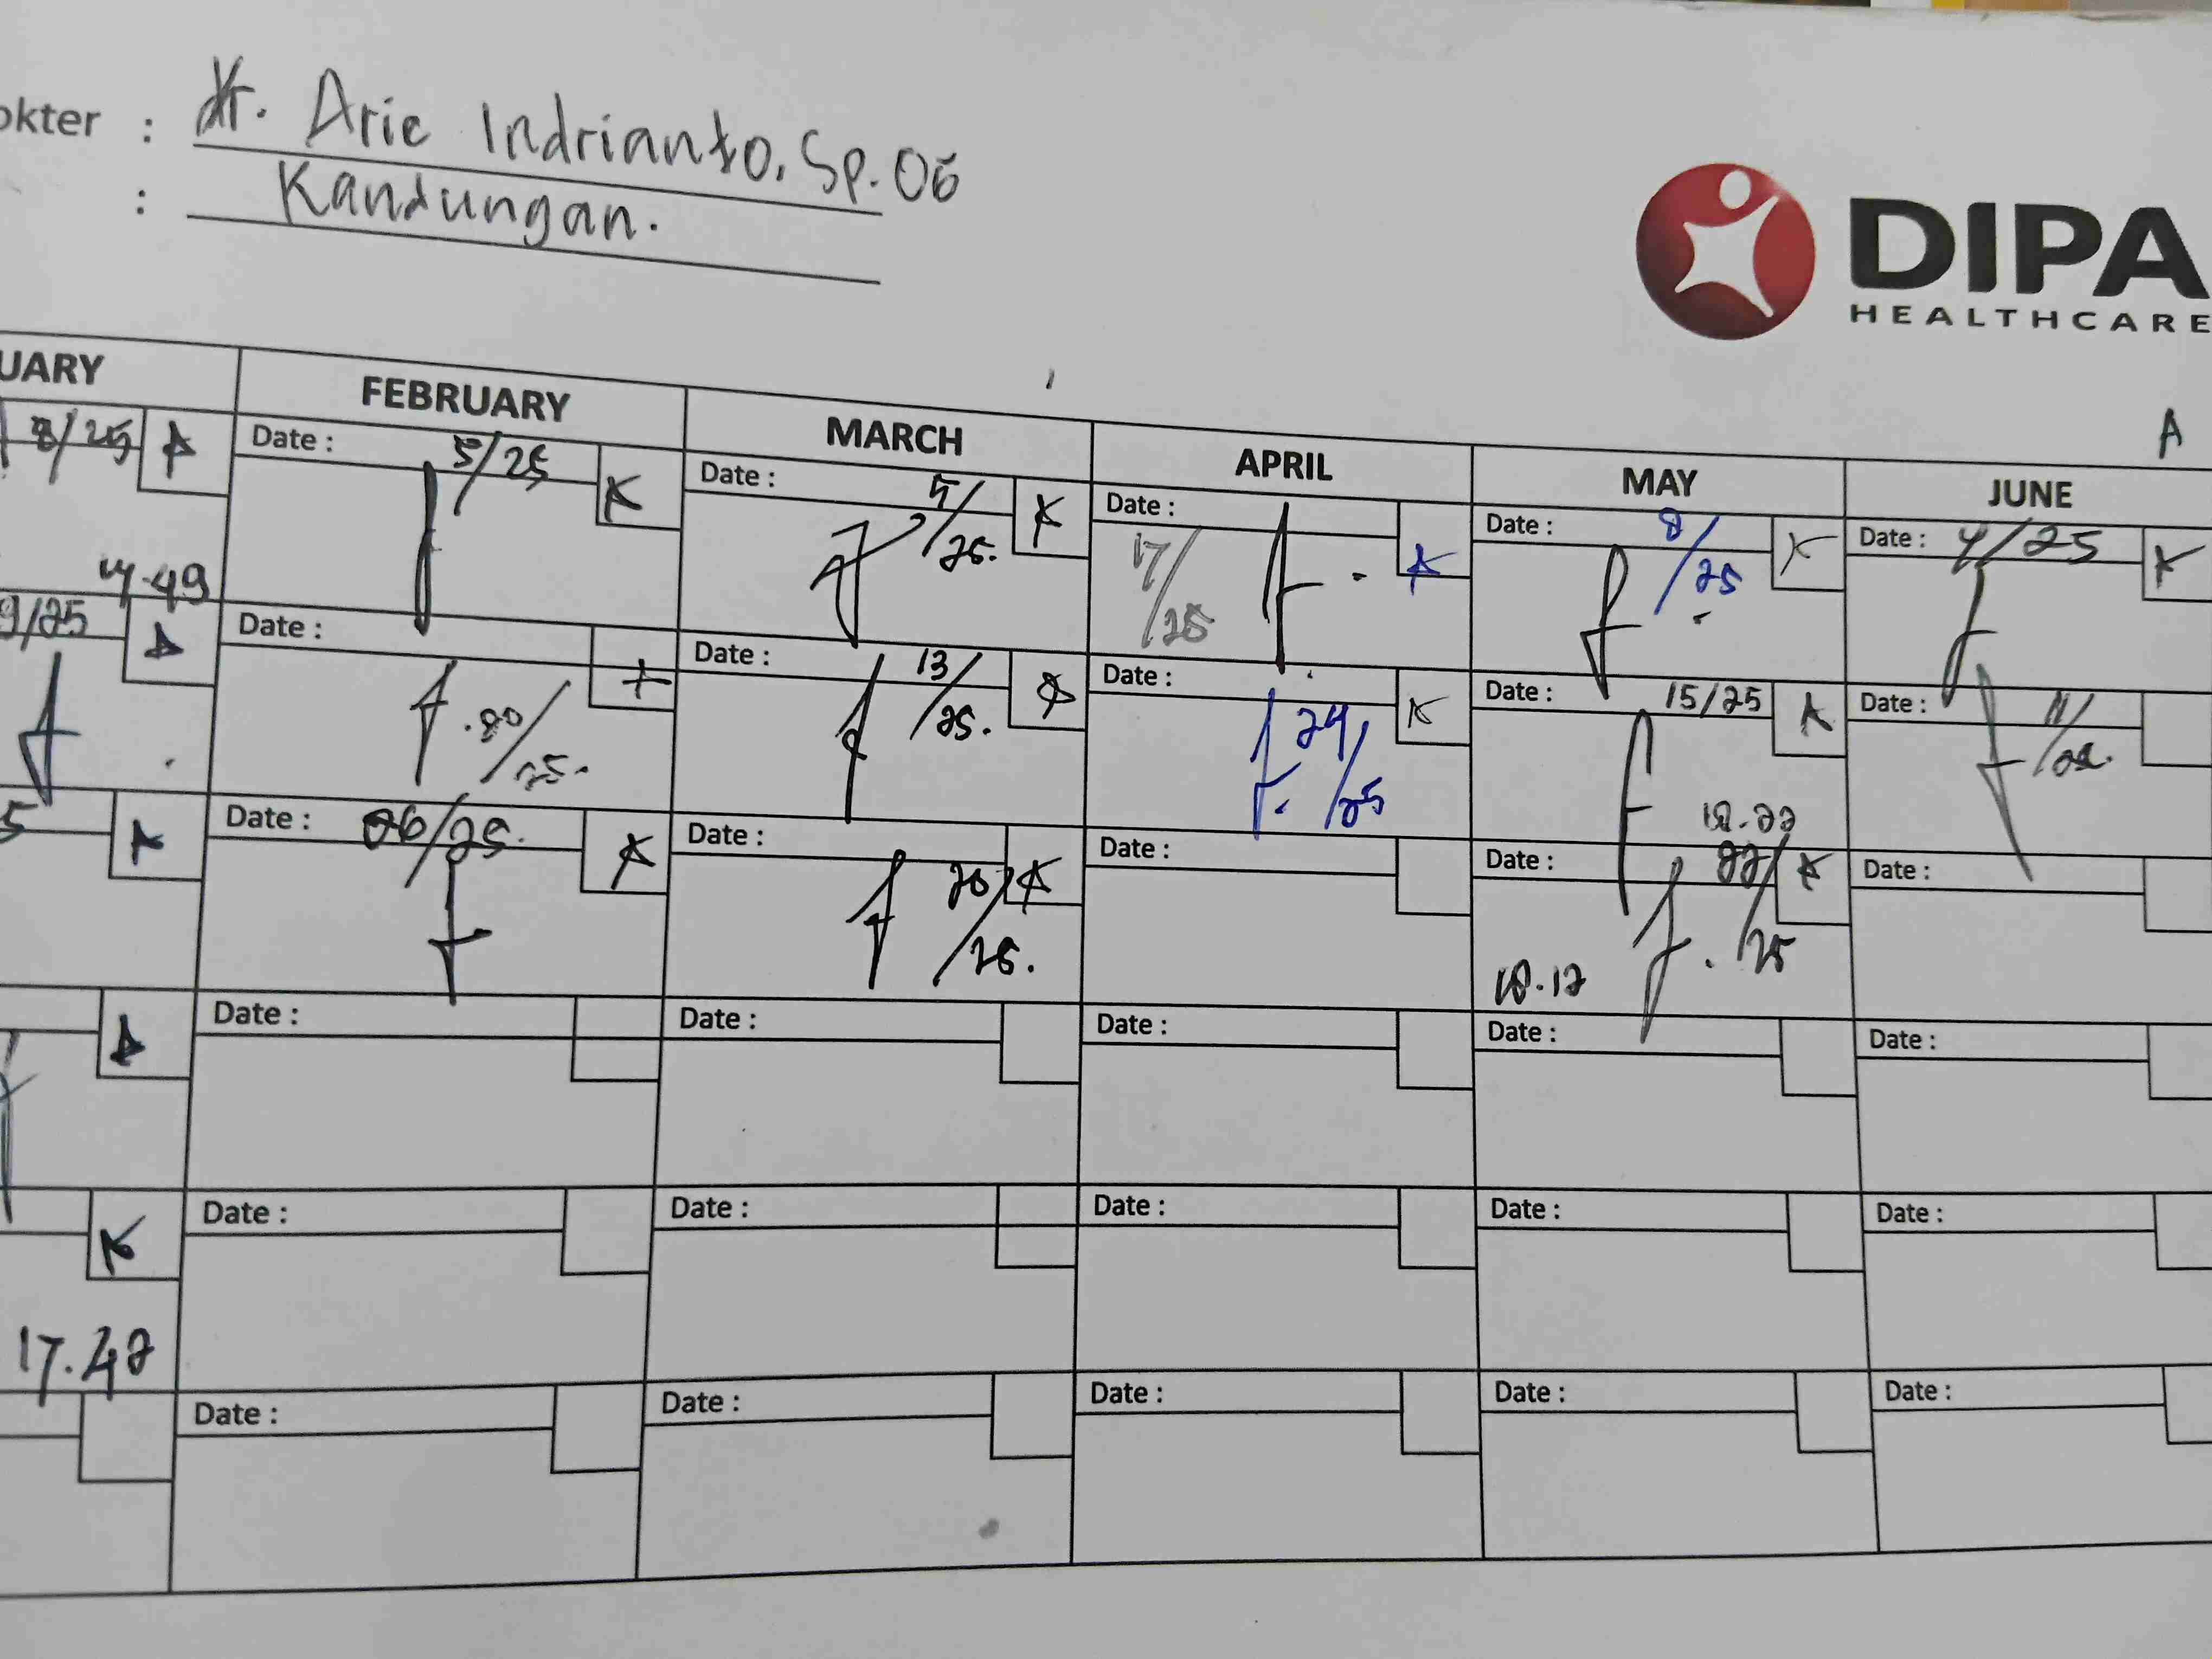 okter : dr. Arie Indrianto, Sp.OG
: Kandungan.
DIPA
HEALTHCARE
A
UARY FEBRUARY MARCH APRIL MAY JUNE
8/25 A Date : 5/25 K Date : 5/25. K Date : 17/25 K Date : 8/25 K Date : 4/25 K
17.49
9/25 A Date : 20/25. Date : 13/25. A Date : 24/25 K Date : 15/25 A Date : 11/25.
18.22
5 A Date : 26/25. A Date : 20/25. A Date : Date : 22/25 A Date :
18.12
A Date : Date : Date : Date : Date :
K Date : Date : Date : Date : Date :
17.42
Date : Date : Date : Date : Date :